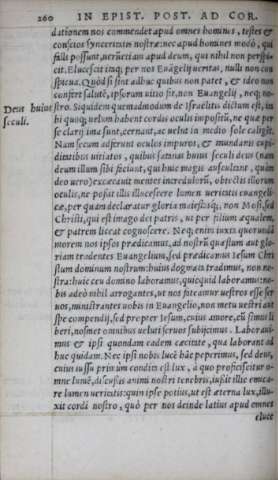 260 IN EPIST. POST. AD COR.
dationem nos commendet apud omnes hominis, testes &
conscios synceritatis nostræ: nec apud homines modò, qui
falli possunt, uerùmetiam apud deum, qui nihil non perspi-
cit. Elucescit inquam per nos Euãgelij ueritas, nulli non con
spicua. Quòd si sint adhuc quibus non patet, & ideo non
confert salutẽ, ipsorum uitio fit, non Euangelij, neque no-
stro. Siquidem quemadmodum de Israëlitis dictum est, ita
hi quoque uelum habent cordis oculis impositũ, ne quæ per
se clara sunt, cernant, ac uelut in medio sole caligẽt.
Nam secum adferunt oculos impuros, & mundanis cupi-
ditatibus uitiatos, quibus satanas huius seculi deus (nam
deum illum sibi faciunt, qui huic magis auscultant, quàm
deo uero) excæcauit mentes incredulorũ, obtectis illorum
oculis, ne possit illis illucescere lumen ueritatis euangeli-
cæ, per quam declaratur gloria maiestasque, non Mosi, sed
Christi, qui est imago dei patris, ut per filium æqualem,
& patrem liceat cognoscere. Neque enim iuxta quorundã
morem nos ipsos prædicamus, ad nostrũ quæstum aut glo-
riam tradentes Euangelium, sed prædicamus Iesum Chri
stum dominum nostrum: huius dogmata tradimus, non no-
stra: huic ceu domino laboramus, quicquid laboramus: no-
bis adeò nihil arrogantes, ut nos fateamur uestros esse ser
uos, ministrantes uobis in Euangelio, non metu uestri aut
spe compendij, sed propter Iesum, cuius amore, cũ simus li
beri, nosmet omnibus ueluti seruos subijcimus. Laboraui-
mus & ipsi quondam eadem cæcitate, qua laborant ad
huc quidam. Nec ipsi nobis lucẽ hãc peperimus, sed deus,
cuius iussu primùm condita est lux, à quo proficiscitur o-
mne lumẽ, discussis animi nostri tenebris, iussit illic emica-
re lumen ueritatis: quin ipse potius, ut est æterna lux, illu-
xit cordi nostro, quò per nos deinde latius apud omnes
eluce
Deus huius
seculi.